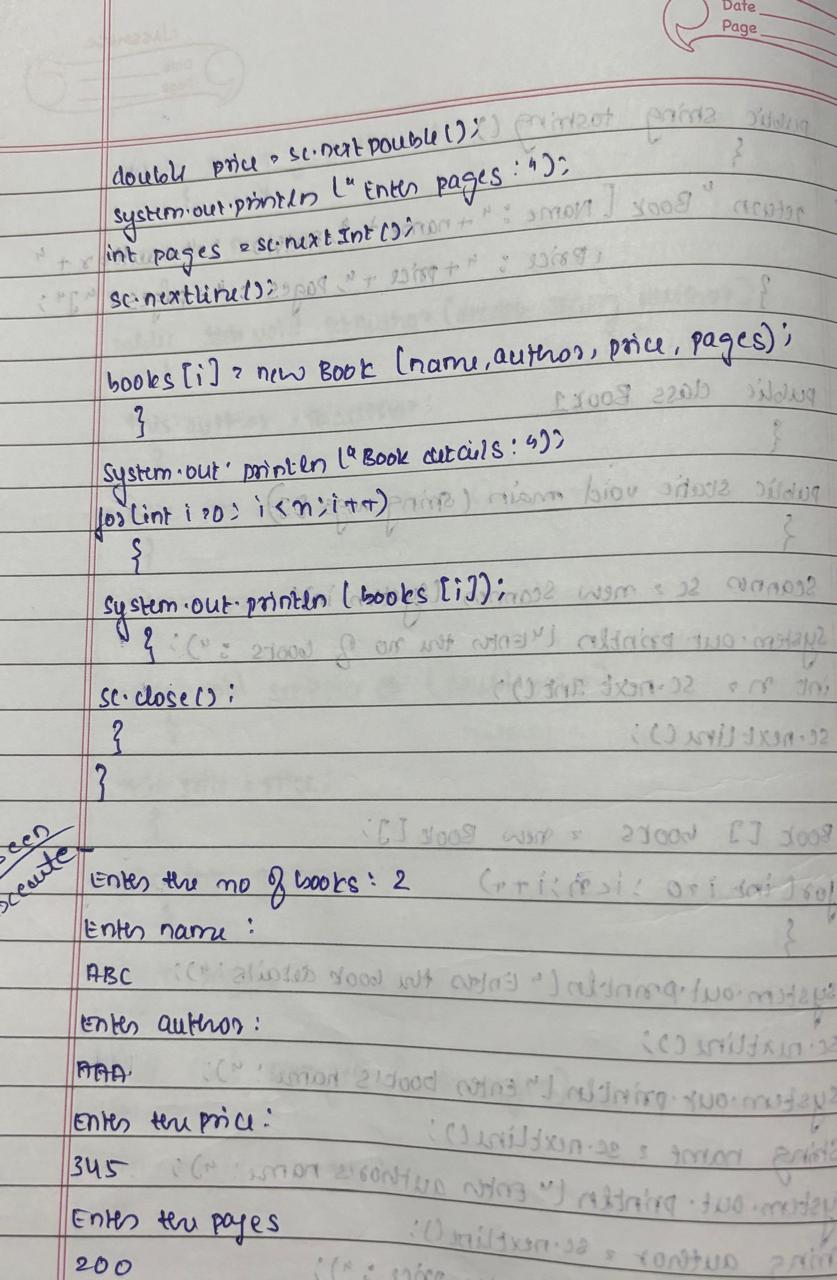 Date
Page
double price = sc.nextDouble();
system.out.println ("Enter pages : ");
int pages = sc.nextInt();
sc.nextline();
books [i] = new Book (name, author, price, pages);
}
system.out. println ("Book details : ");
for (int i=0; i<n; i++)
{
system.out.println (books [i]);
}
sc.close();
}
}
Enter the no of books : 2
Enter name :
ABC
Enter author :
AAA
Enter the price :
345
Enter the pages
200